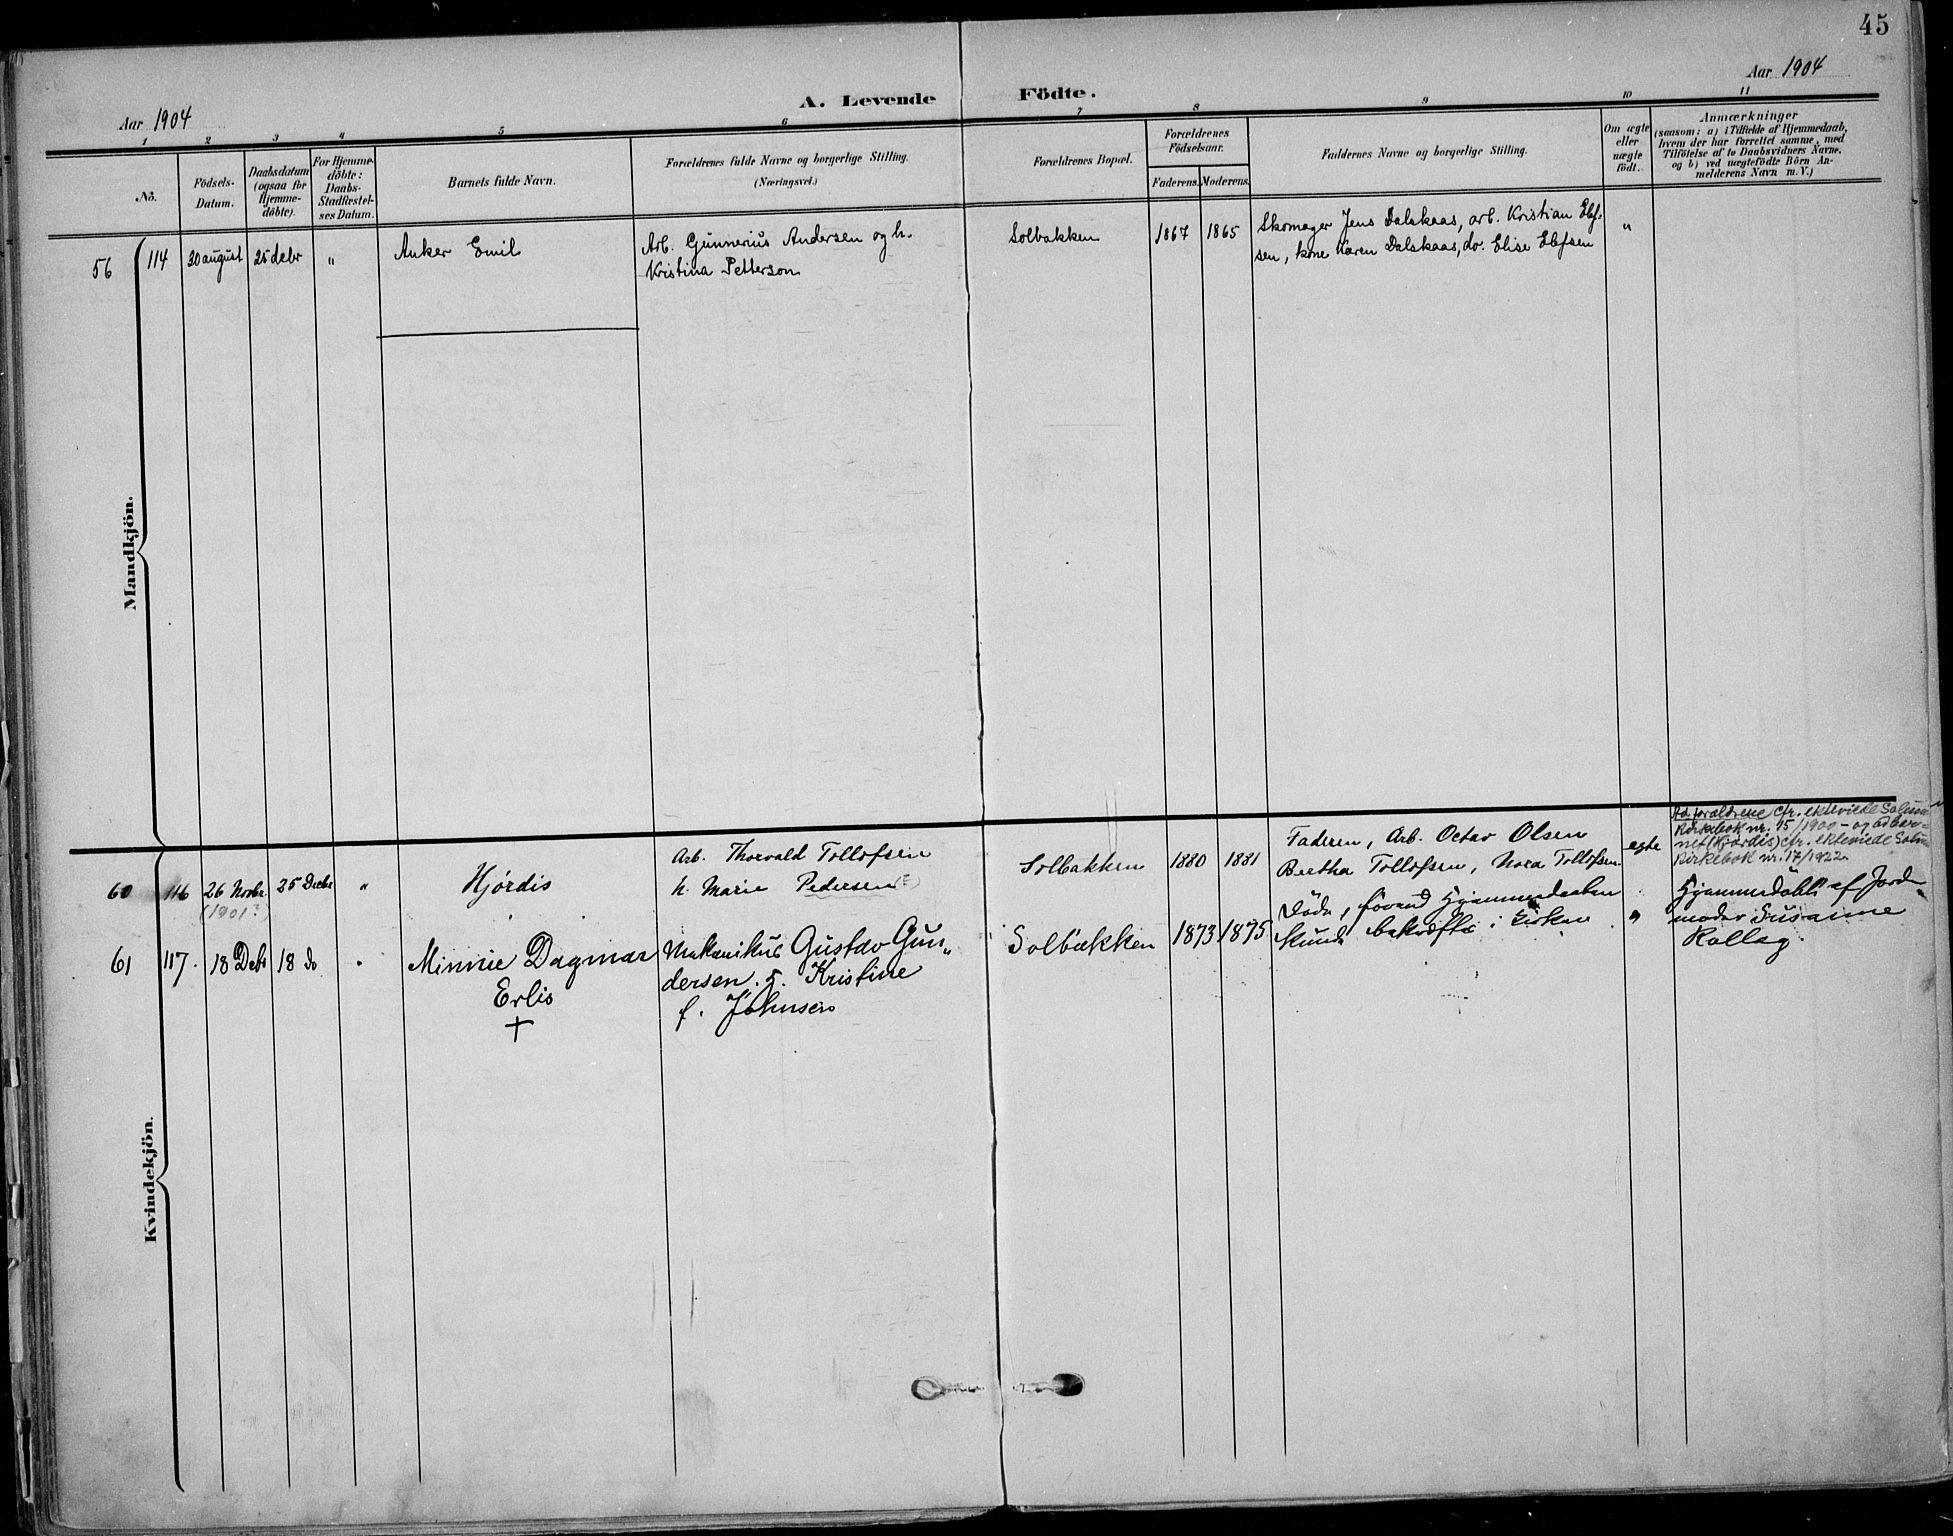 45
Aar 1904
A. Levende Födte.
Aar 1904
1 2 3 4 5 6 7 8 9 10 11
No.
Födsels-
Datum.
Daabsdatum
(ogsaa for
Hjemme-
döbte).
For Hjemme-
döbte:
Daabs-
Stadfæstel-
ses Datum.
Barnets fulde Navn.
Forældrenes fulde Navne og borgerlige Stilling.
(Næringsvei.)
Forældrenes Bopæl.
Forældrenes
Födselsaar.
Faderens. Moderens.
Faddernes Navne og borgerlige Stilling.
Om ægte
eller
uægte
födt.
Anmærkninger
(saasom: a) i Tilfælde af Hjemmedaab,
hvem der har forrettet samme, med
Tilföielse af to Daabsvidners Navne,
og b) ved uægtefödte Börn An-
melderens Navn m. V.)
Mandkjön.
56 114 30 august 25 debr " Anker Emil
Arb. Gunnerius Andersen og h.
Kristina Petterson
Solbakken 1867 1865
Skomager Jens Dalskaas, arb. Kristian Elef-
sen, kone Karen Dalskaas, do. Elise Elefsen
"
Kvindekjön.
60 116 26 Novbr. 25 Decbr "
(1901?)
Hjørdis
Arb. Thorvald Tollofsen
h. Marie Pedersen
Solbakken 1880 1881
Faderen, Arb. Octav Olsen
Bertha Tollofsen, Nora Tollofsen
egte
Ad foraldrene cfr. ekteviede Solum
Kirkebok nr. 15/1900 - og ad bar-
net (Hjørdis) cfr. ekteviede Solum
Kirkebok nr. 17/1922
61 117. 18 Debr 18 do "
Minnie Dagmar
Erlis
+
Mekanikus Gustav Gun-
dersen. h. Kristine
f. Johnsen
Solbakken 1873 1875
Døde, förend Hjemmedaaben
kunde bekræftes i Kirken
"
Hjemmedøbt af Jorde-
moder Susanne
Rollag.